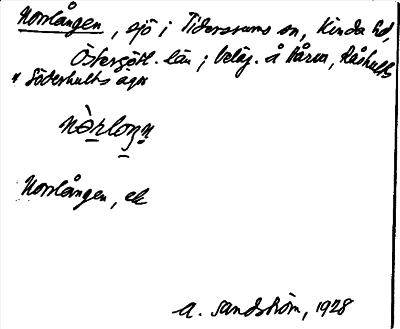 Norrlången, sjö i Tidersrums sn, Kinda hd,
Östergötl. län; beläg. å Kårea, Råshults
" Söderhults ägor
Norrlången, ek
A. Sandström, 1928